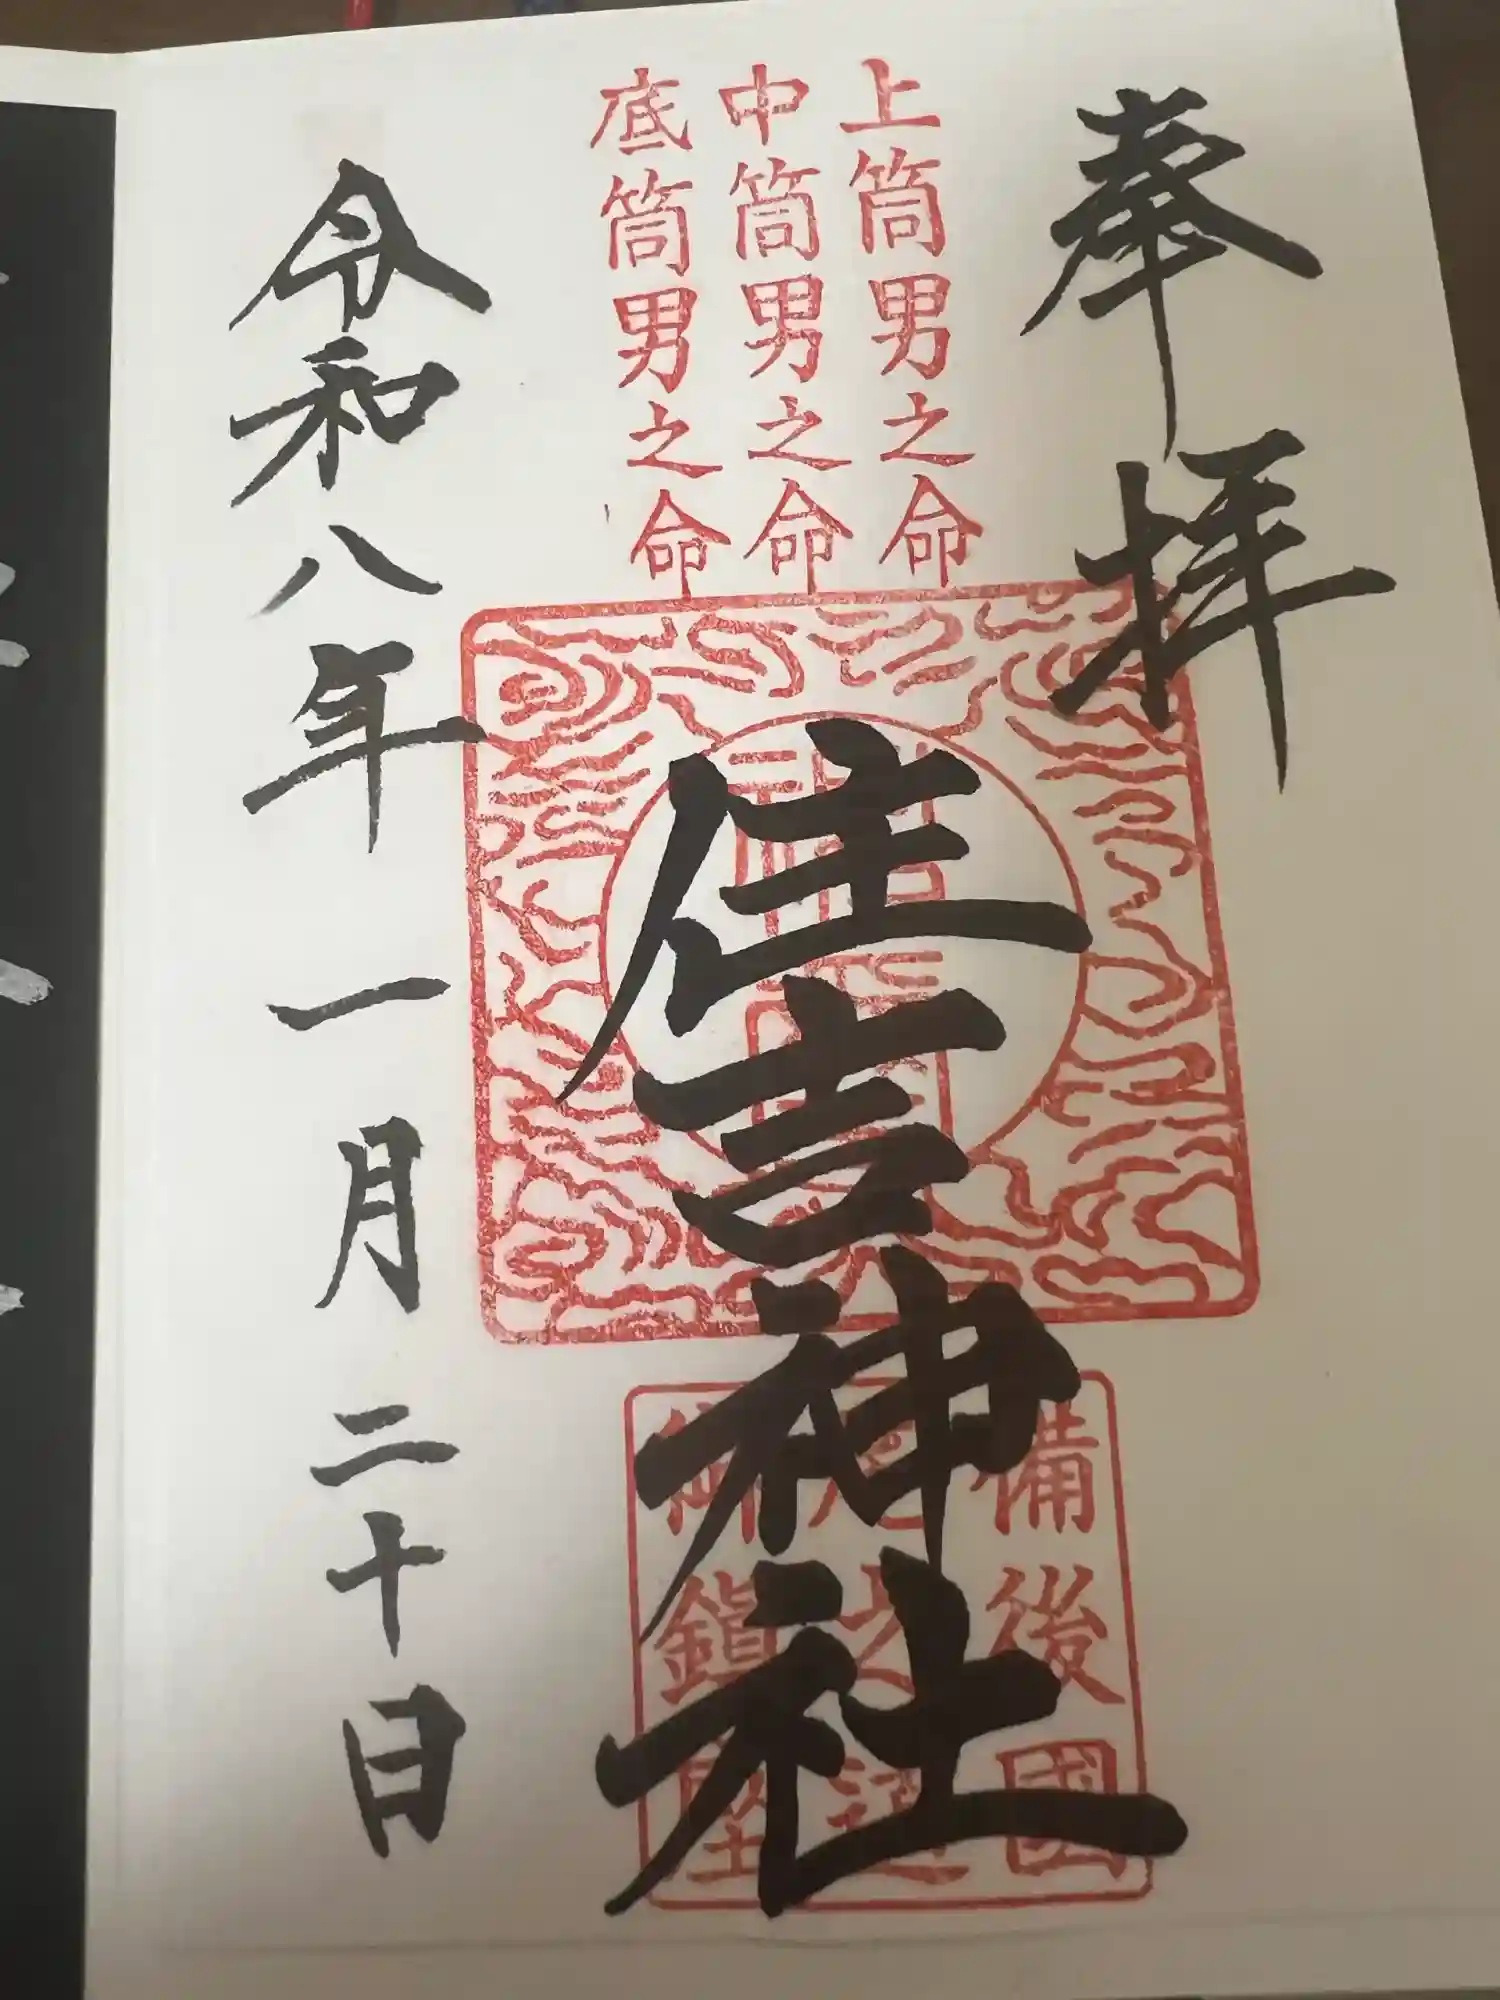 奉拝
上筒男之命
中筒男之命
底筒男之命
住吉神社
備後國
尾之道
御鎮座
令和八年一月二十日